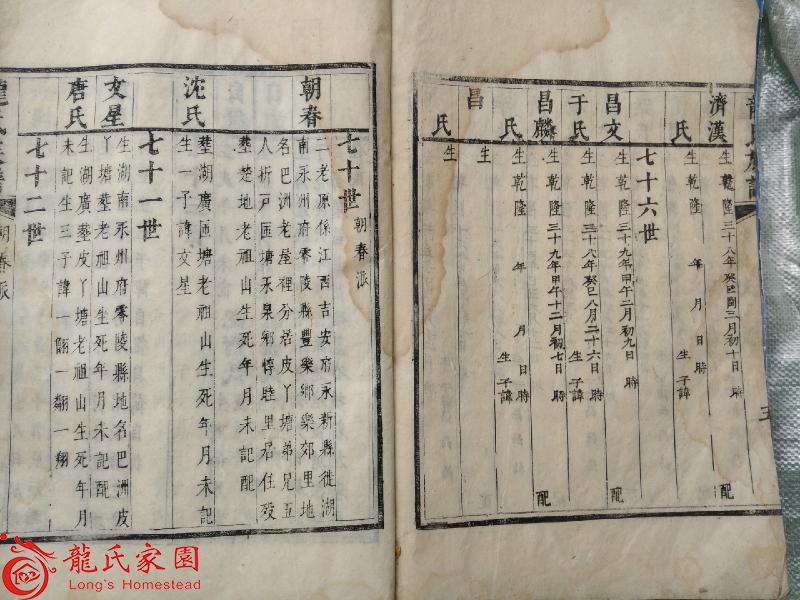 濟漢
生乾隆三十八年癸巳閏三月初十日時 配
氏
生乾隆 年 月 日時 生子諱
七十六世
昌文
生乾隆三十九年甲午二月初九日 時 配
于氏
生乾隆三十八年癸巳八月二十六日 時 生子諱
昌麟
生乾隆三十九年甲午十二月初七日 時 配
氏
生乾隆 年 月 日時 生子諱
昌
生
氏
生
五
七十世 朝春派
朝春
二老原係江西吉安府永新縣徙湖
南永州府零陵縣豐樂鄉樂郊里地
名巴洲老屋裡分居皮丫塘弟兄五
人折戸匜塘永泉鄉惇睦里居住歿
塟楚地老祖山生死年月未記配
沈氏
塟湖廣匜塘老祖山生死年月未記
生一子諱文星
七十一世
文星
生湖南永州府零陵縣地名巴洲皮
丫塘塟老祖山生死年月未記配
唐氏
生湖廣塟皮丫塘老祖山生死年月
未記生三子諱一翮一翻一翔
七十二世
朝春派
龍氏家園
Long's Homestead